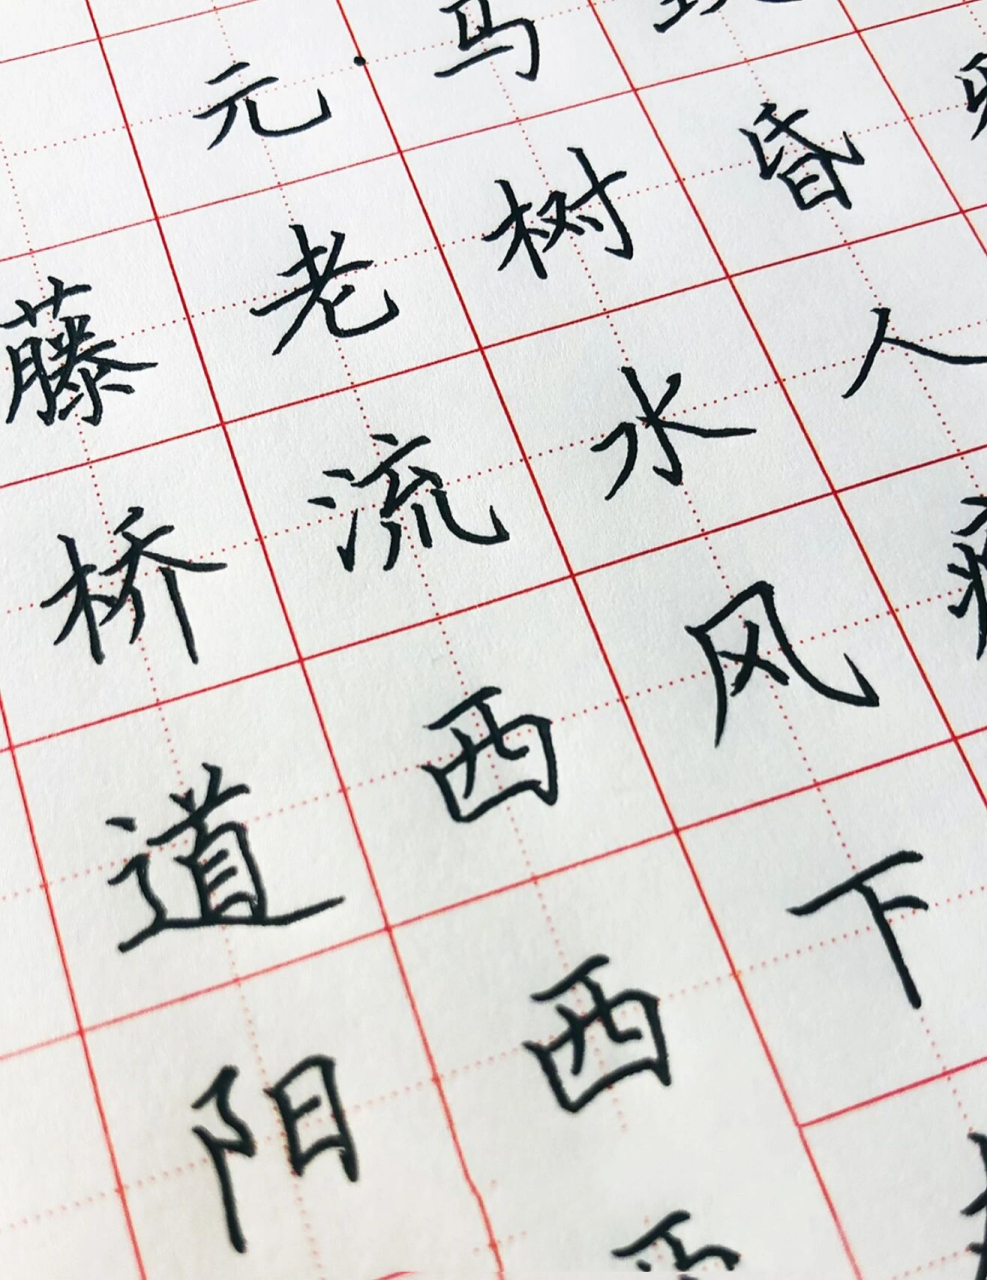 元·马
藤老树昏
桥流水人
道西风
阳西下